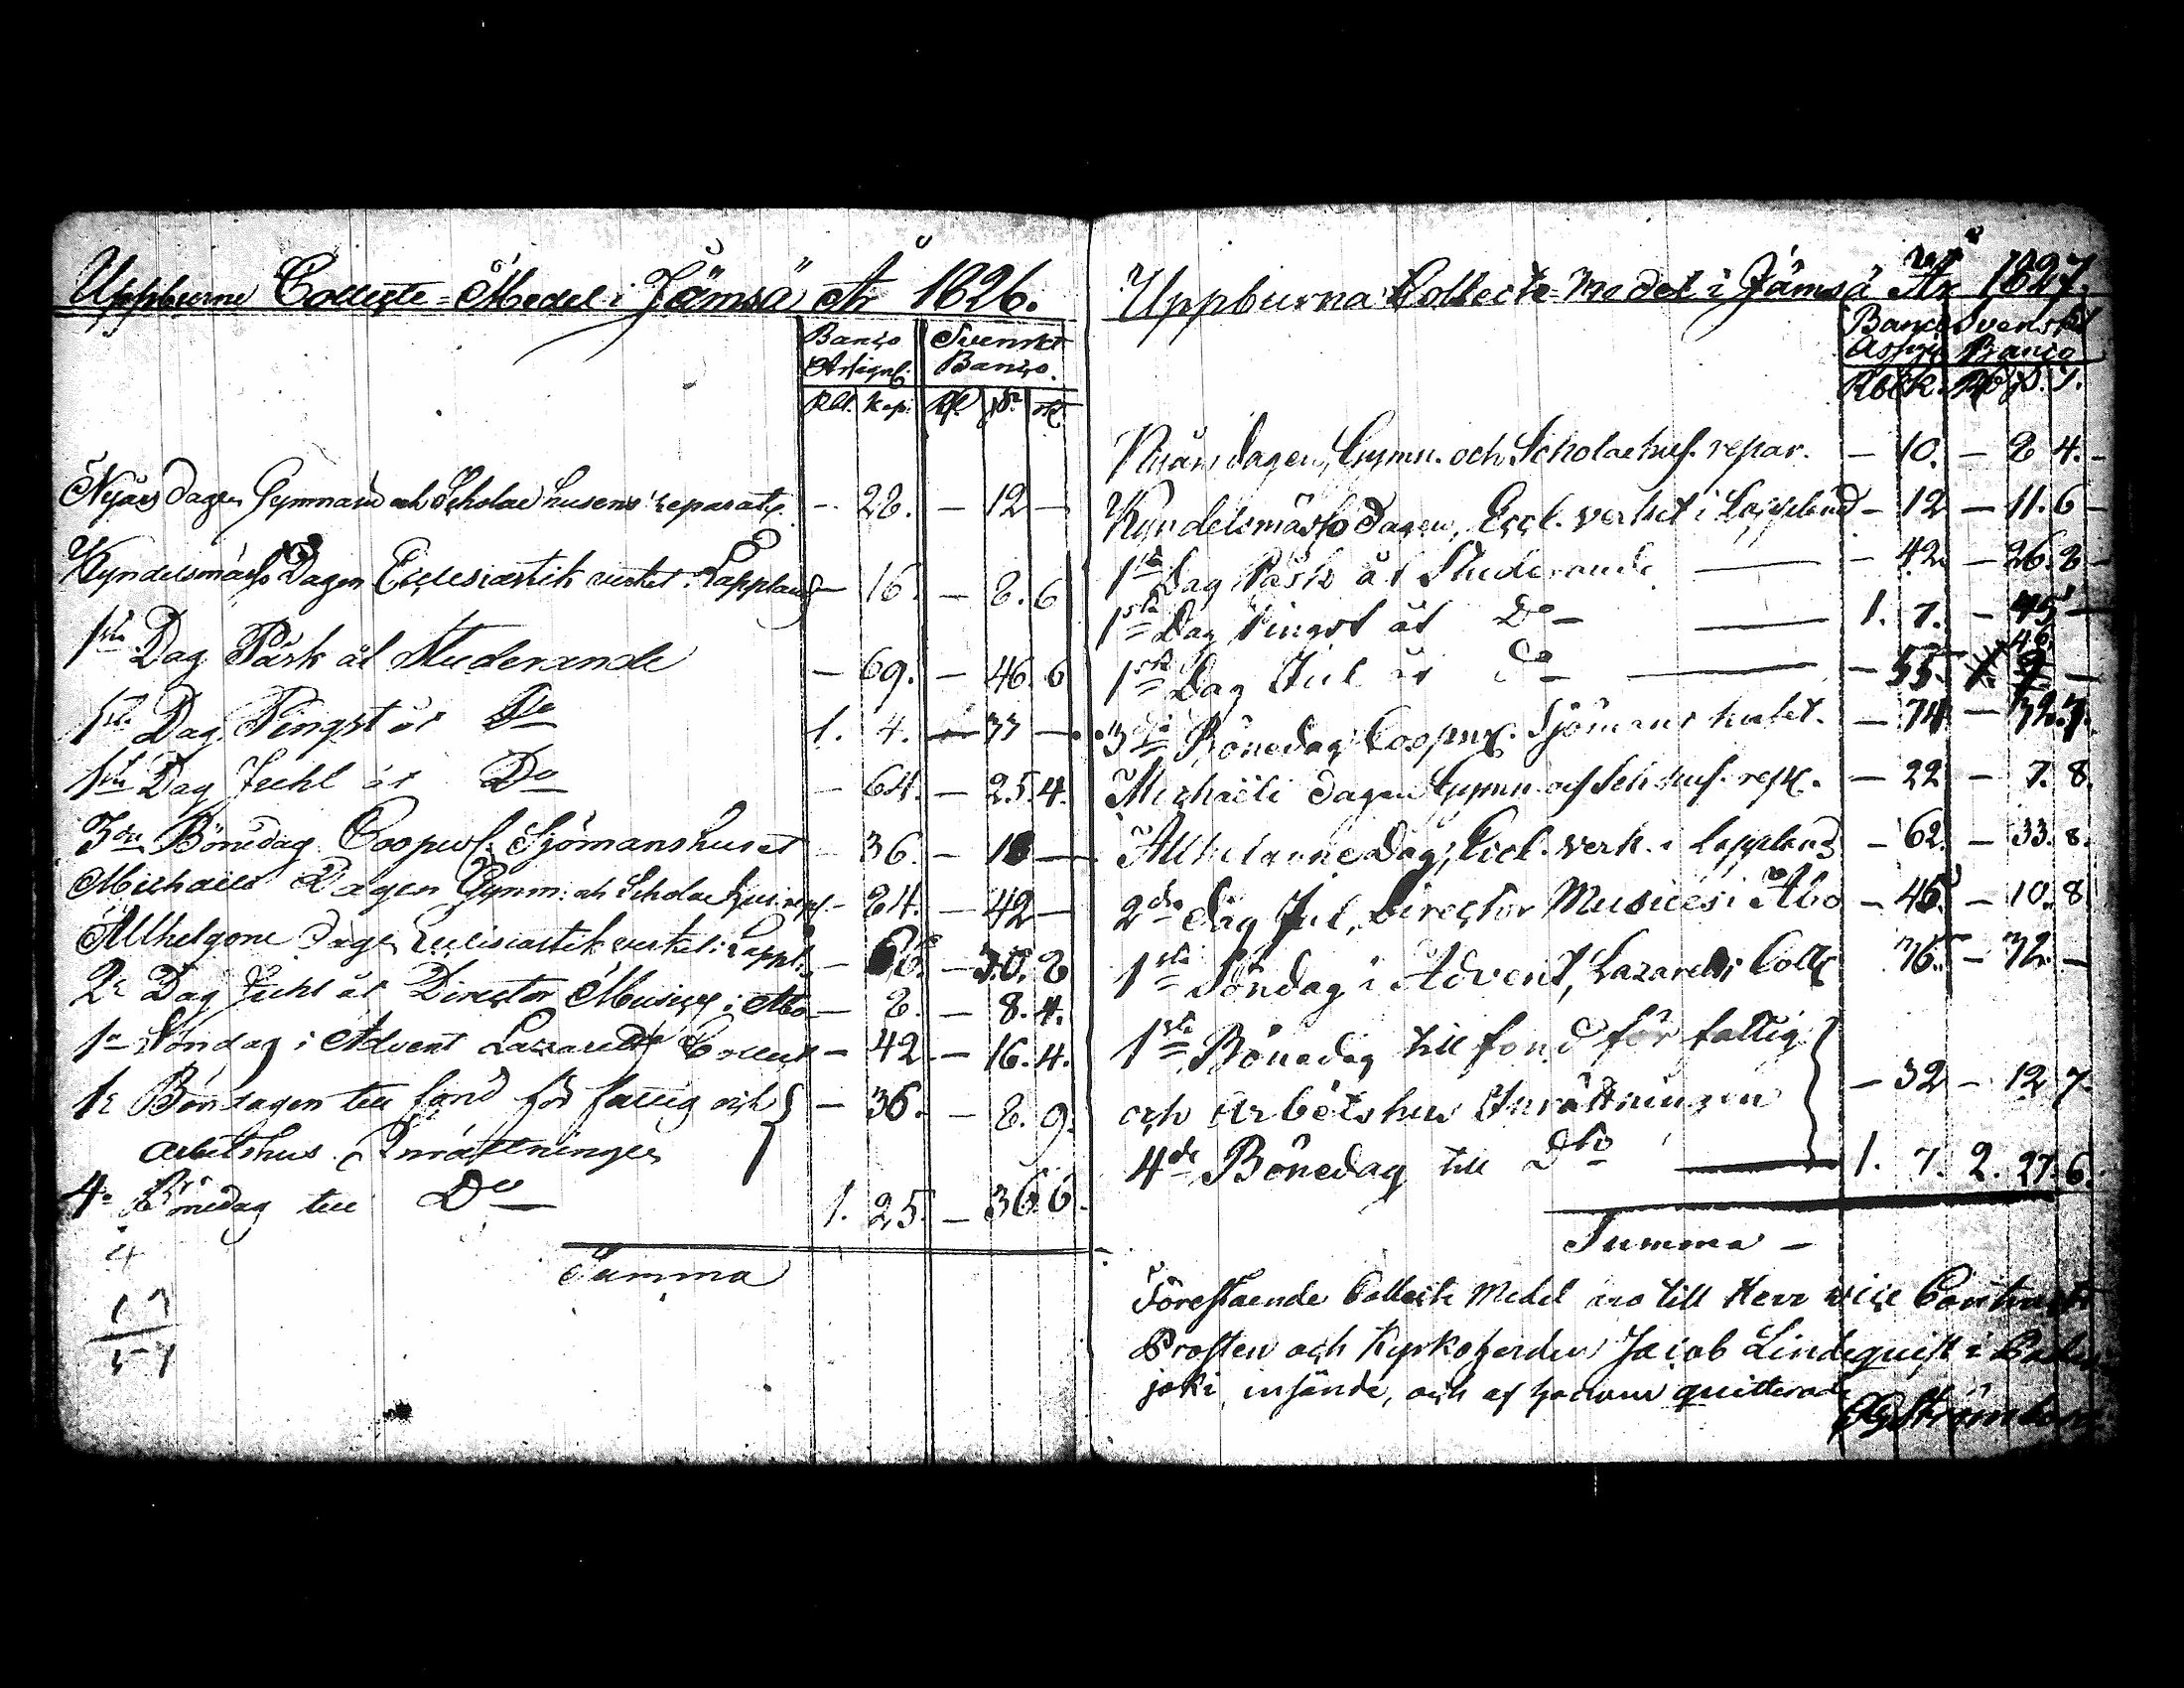 Uppburne Collecte-Medel i Jämsä År 1826.
Banco Svenskt
Assign. Banco.
Rbl. Kop. Rd. s. rst.
Nyårs dagen Gymnasii och Scholae husens reparat. - 22. - 12 -
Kyndelsmässo Dagen Ecclesiastik verket i Lappland - 16. - 8. 6
1sta Dag Påsk åt Studerande - 69. - 46. 6
1sta Dag Pingst åt Do 1. 4. - 33 -
1sta Dag Juhl åt Do - 64. - 25. 4.
3dje Bönedag Coopverd. Sjömanshuset - 36. - 18 -
Michaelis Dagen Gymn. och Scholae hus. rep. - 24. - 42 -
Allhelgone Dag Ecclesiastik verket i Lappl. - - 30. 2
2e Dag Juhl åt Director Musices i Åbo - 2. - 8. 4.
1e Söndag i Advent Lazaretts Collect - 42 - 16. 4.
1e Böndagen till fond för fattig och } - 36. - 8. 9.
arbetshus Inrättningen
4e Bönedag till Do 1. 25. - 36. 6.
Summa
Uppburna Collecte-Medel i Jämsä År 1827.
Banco Svenskt
Assig. Banco
Rbl K. Rd s. r.
Nyårsdagen, Gymn. och Scholae hus. repar. - 10. - 2 4. -
Kyndelsmässo Dagen, Eccl. verket i Lappland - 12 - 11. 6 -
1sta Dag Påsk åt Studerande - 42 - 26. 8 -
1sta Dag Pingst åt Do - 1. 7. - 45 -
1sta Dag Jul åt Do - 55. 46. -
3dje Bönedag Coopverd. Sjömans huset. - 74 - 32. 7.
Michaëli dagen Gymn. och Sch. hus. rep. - 22 - 7. 8.
Allhelgone Dag, Eccl. verk. i Lappland - 62. - 33. 8.
2dra Dag Jul, Director Musices i Åbo - 45. - 10. 8
1sta Söndag i Advent, Lazaretts Coll. 76. - 32. -
1sta Bönedag till fond för fattig }
och Arbetshus Inrättningen - 32 - 12 7.
4de Bönedag till Dto 1. 7. 2. 27. 6.
Summa -
Förestående Collecte Medel äro till Herr Vice Contracts
Prosten och Kyrkoherden Jacob Lindequist i Padas-
joki insände, och af honom quitterade